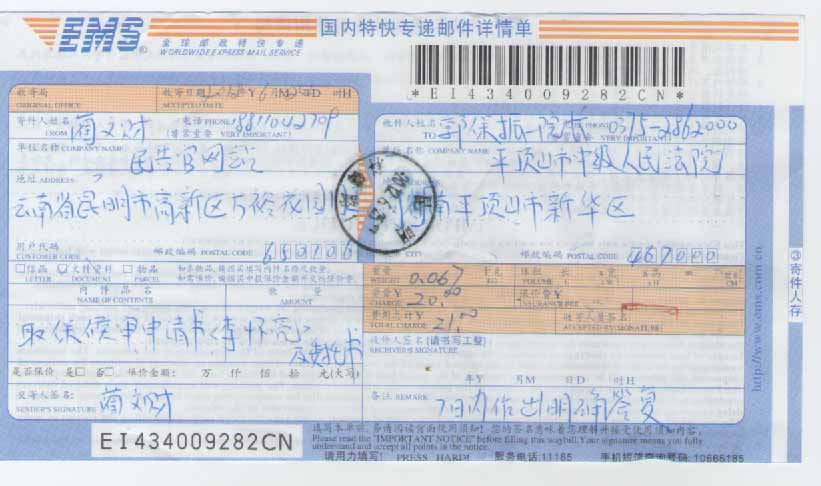 EMS
全球邮政特快专递
WORLDWIDE EXPRESS MAIL SERVICE
国内特快专递邮件详情单
*EI434009282CN*
收寄局
ORIGINAL OFFICE
收寄日期 年Y 6月M 日D 时H
ACCEPTED DATE
寄件人姓名 蔺文财 电话PHONE
FROM (非常重要 VERY IMPORTANT)
单位名称COMPANY NAME
民告官网站
地址 ADDRESS
云南省昆明市高新区
用户代码
CUSTOMER CODE
邮政编码 POSTAL CODE
收件人姓名 郭保振 院长 PHONE 0375-2862000
TO VERY IMPORTANT
单位名称 COMPANY NAME 平顶山市中级人民法院
ADDRESS
河南平顶山市新华区
CITY
邮政编码 POSTAL CODE 467000
信函 文件资料 物品
LETTER DOCUMENT PARCEL
如系物品,请据实填写内件名称及数量。
如需保价,请据实申报保价金额并交纳保价费。
内件品名 数量
NAME OF CONTENTS AMOUNT
取保候审申请书(李怀亮)
及委托书
是否保价 是 否 保价金额: 万 仟 佰 拾 元(大写)
交寄人签名: 蔺文财
SENDER'S SIGNATURE
重量 0.067 千克 体积 长 x宽 x高
WEIGHT KG VOLUME L x W x H CM
资费¥ 20.00 保价费¥
CHARGE FEE INSURANCE FEE
费用总计¥ 21.00 收寄人员签名:
TOTAL CHARGE ACCEPTED BY(SIGNATURE)
收件人签名(请书写工整)
RECEIVER'S SIGNATURE
年Y 月M 日D 时H
备注 REMARK 7日内作出明确答复
③寄件人存
http://www.ems.com.cn
EI434009282CN
填写本单前,务请阅读背面使用须知!您的签名意味着您理解并接受使用须知内容。
Please read the "IMPORTANT NOTICE" before filling this waybill.Your signature means you fully
understand and accept all points in the notice.
请用力填写! PRESS HARD! 服务电话:11185 手机短信查询号码:10665185